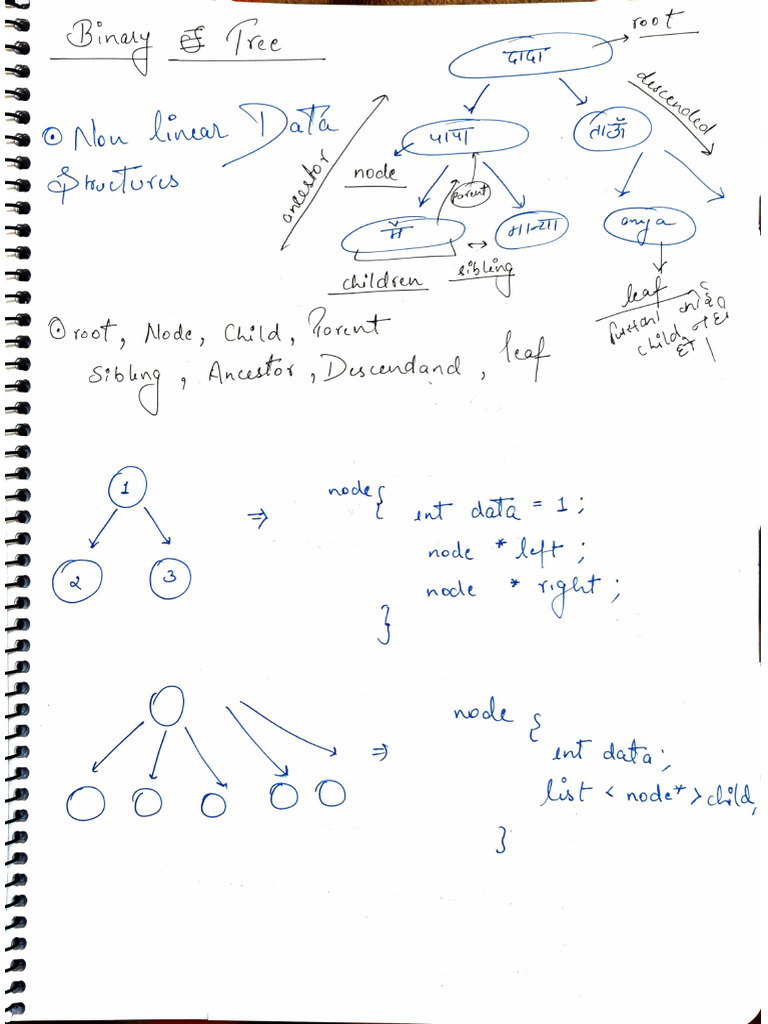 Binary Tree
root
दादा
descended
Non linear Data
Structures
ancestor
पापा
ताऊँ
node
parent
मैं
anya
children
sibling
leaf
root, Node, Child, Parent
Sibling, Ancestor, Descendand, leaf
1
2
3
⇒
node{ int data = 1;
node *left;
node * right;
}
⇒
node {
int data;
list < node* > child,
}